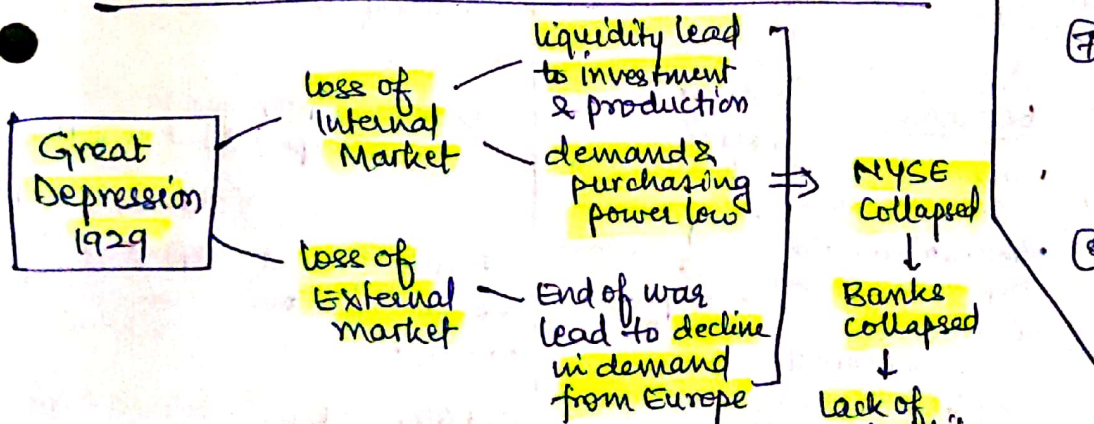 Great
Depression
1929
loss of
Internal
Market
liquidity lead
to investment
& production
demand &
purchasing
power low
loss of
External
market
End of war
lead to decline
in demand
from Europe
⇒
NYSE
Collapsed
↓
Banks
collapsed
↓
Lack of
7